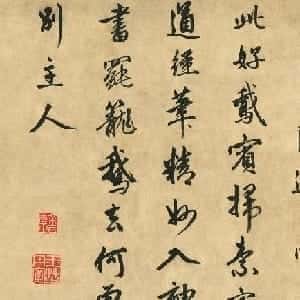 此好鵝賓掃素
道經筆精妙入神
書罷籠鵞去何
別主人